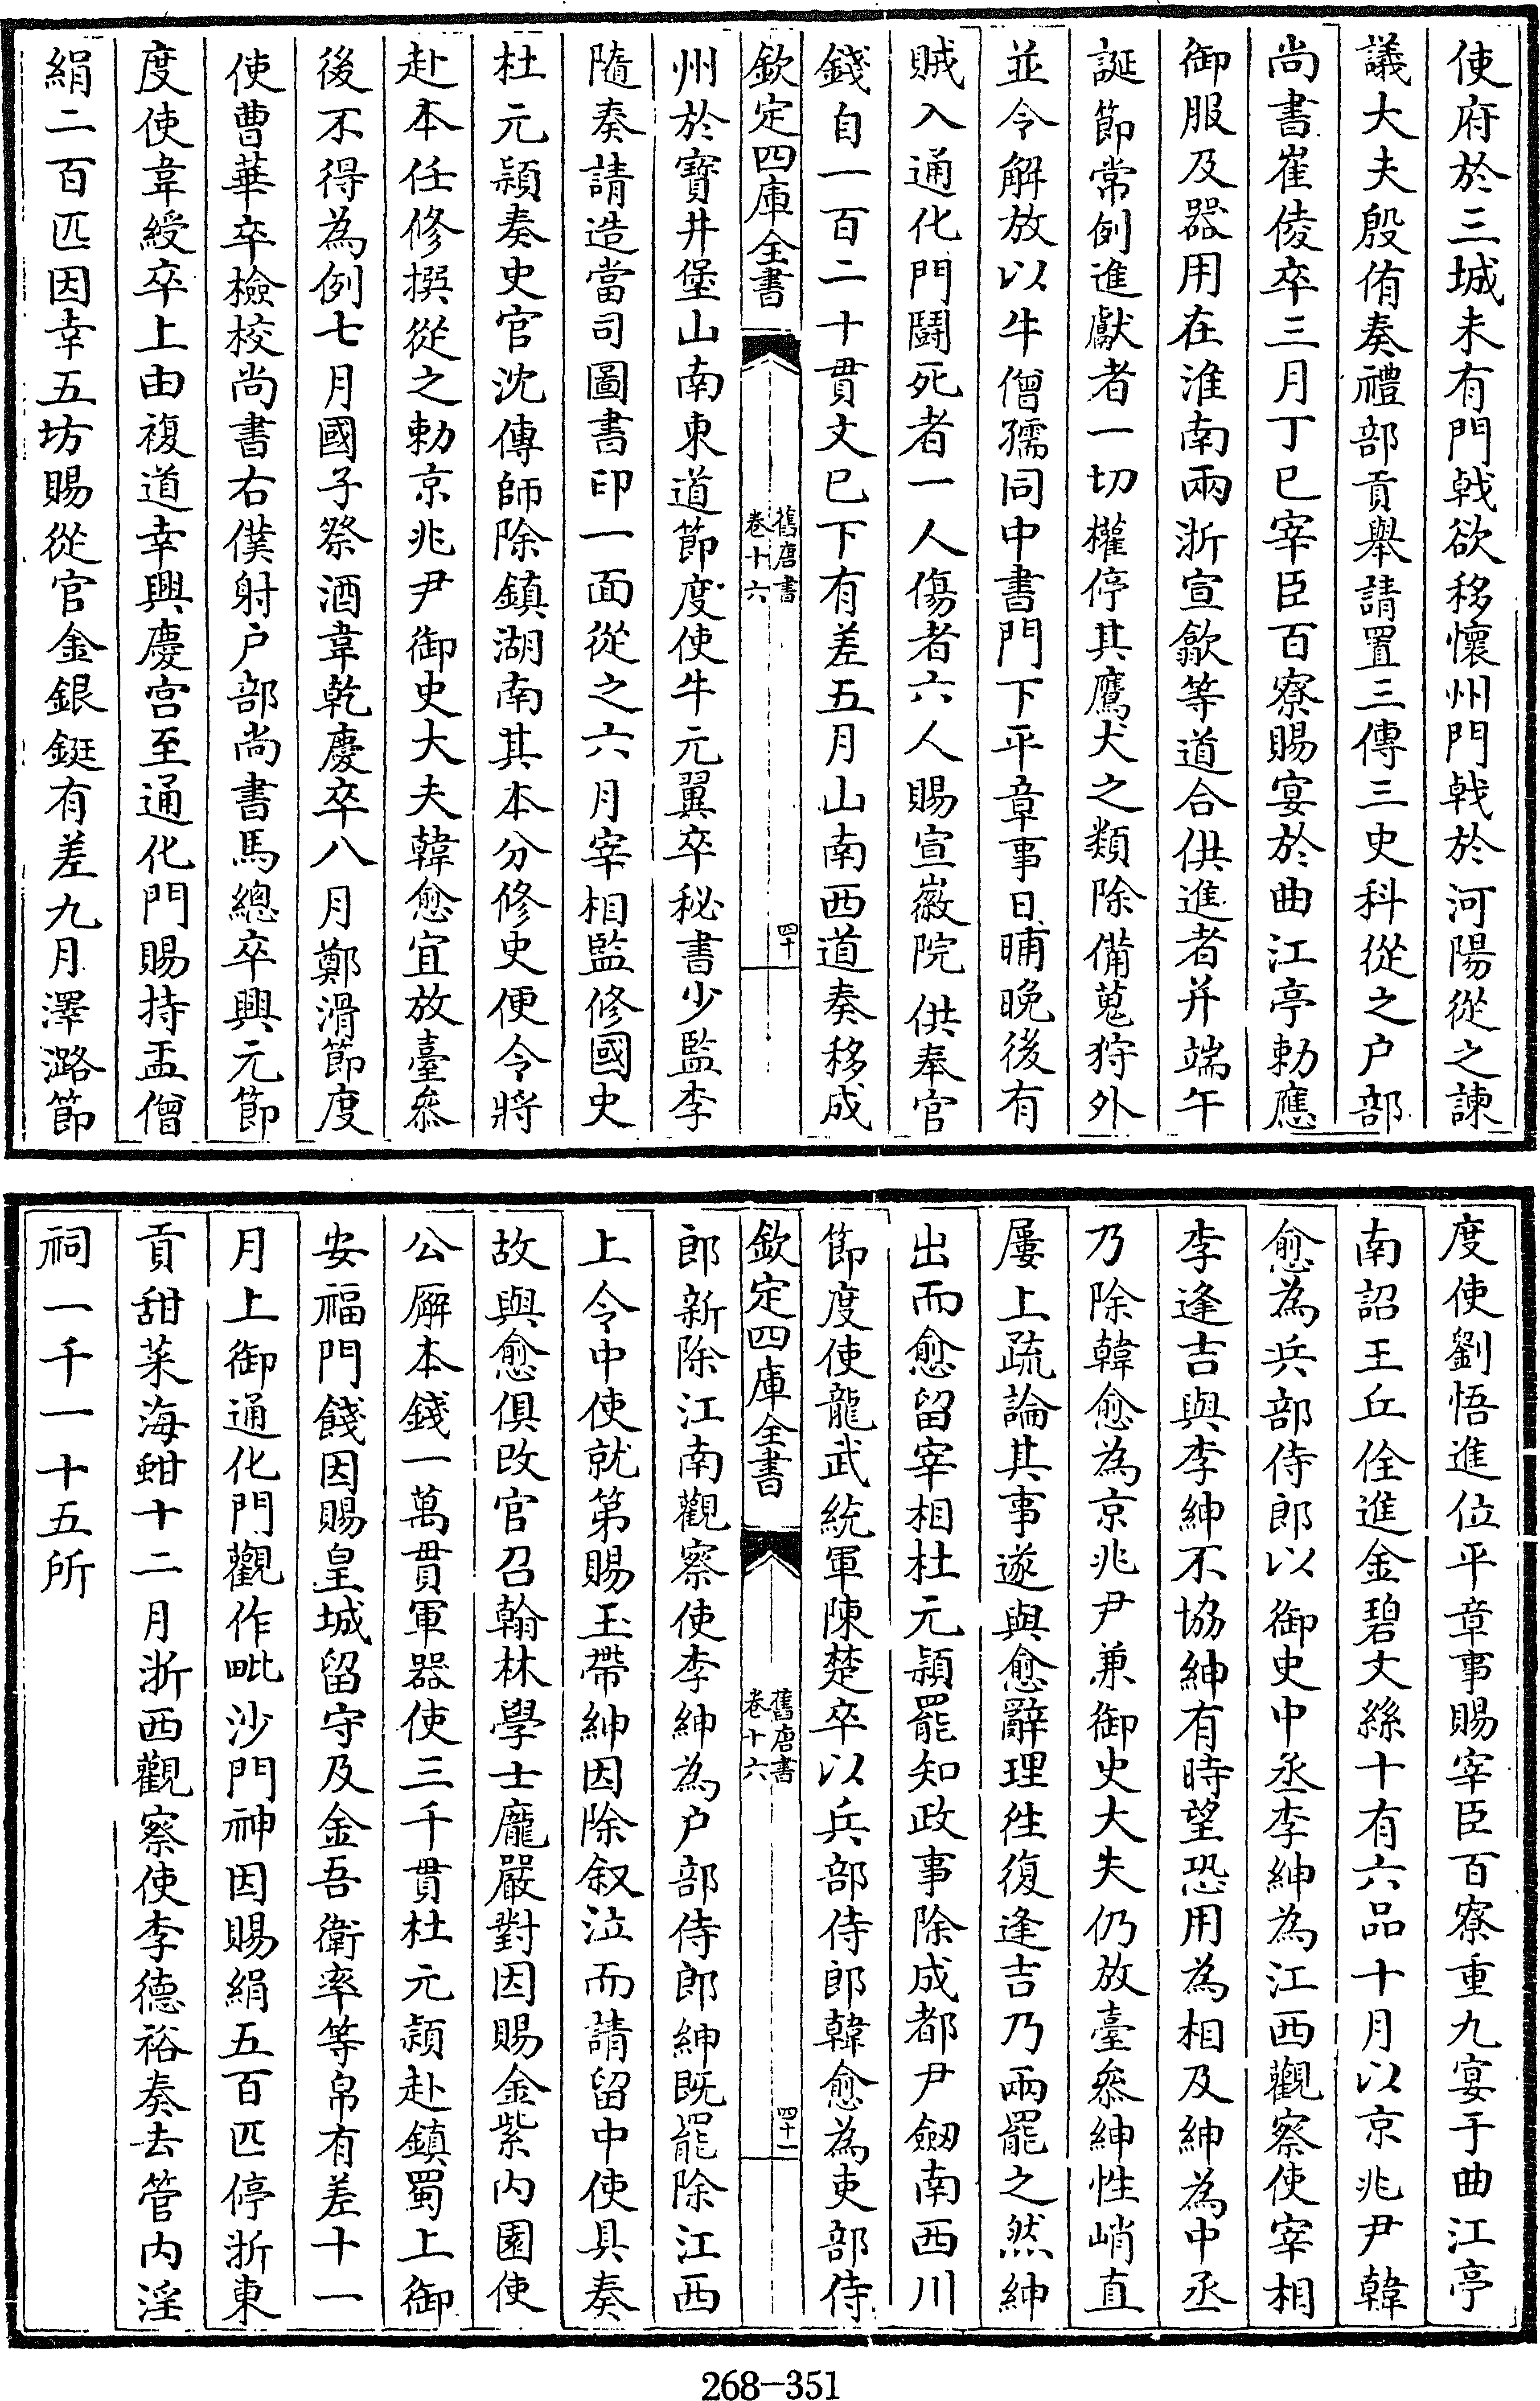 使府於三城未有門戟欲移懷州門戟於河陽從之諫
議大夫殷侑奏禮部貢舉請置三傳三史科從之户部
尚書崔倰卒三月丁巳宰臣百寮賜宴於曲江亭勅應
御服及器用在淮南兩浙宣歙等道合供進者并端午
誕節常例進獻者一切權停其鷹犬之類除備蒐狩外
並令解放以牛僧孺同中書門下平章事日晡晚後有
賊入通化門鬪死者一人傷者六人賜宣徽院供奉官
錢自一百二十貫文已下有差五月山南西道奏移成
欽定四庫全書
舊唐書
卷十六
四十
州於寳井堡山南東道節度使牛元翼卒秘書少監李
隨奏請造當司圖書印一面從之六月宰相監修國史
杜元頴奏史官沈傳師除鎮湖南其本分修史便令將
赴本任修撰從之勅京兆尹御史大夫韓愈宜放臺叅
後不得為例七月國子祭酒韋乾慶卒八月鄭滑節度
使曹華卒檢校尚書右僕射户部尚書馬總卒興元節
度使韋綬卒上由複道幸興慶宫至通化門賜持盂僧
絹二百匹因幸五坊賜從官金銀鋌有差九月澤潞節
度使劉悟進位平章事賜宰臣百寮重九宴于曲江亭
南詔王丘佺進金碧文絲十有六品十月以京兆尹韓
愈為兵部侍郎以御史中丞李紳為江西觀察使宰相
李逢吉與李紳不協紳有時望恐用為相及紳為中丞
乃除韓愈為京兆尹兼御史大夫仍放臺叅紳性峭直
屢上疏論其事遂與愈辭理往復逢吉乃兩罷之然紳
出而愈留宰相杜元頴罷知政事除成都尹劒南西川
節度使龍武統軍陳楚卒以兵部侍郎韓愈為吏部侍
欽定四庫全書
舊唐書
卷十六
四十一
郎新除江南觀察使李紳為户部侍郎紳既罷除江西
上令中使就第賜玉帶紳因除叙泣而請留中使具奏
故與愈俱改官召翰林學士龐嚴對因賜金紫内園使
公廨本錢一萬貫軍器使三千貫杜元頴赴鎮蜀上御
安福門餞因賜皇城留守及金吾衛率等帛有差十一
月上御通化門觀作毗沙門神因賜絹五百匹停浙東
貢甜菜海蚶十二月浙西觀察使李德裕奏去管内淫
祠一千一十五所
268-351